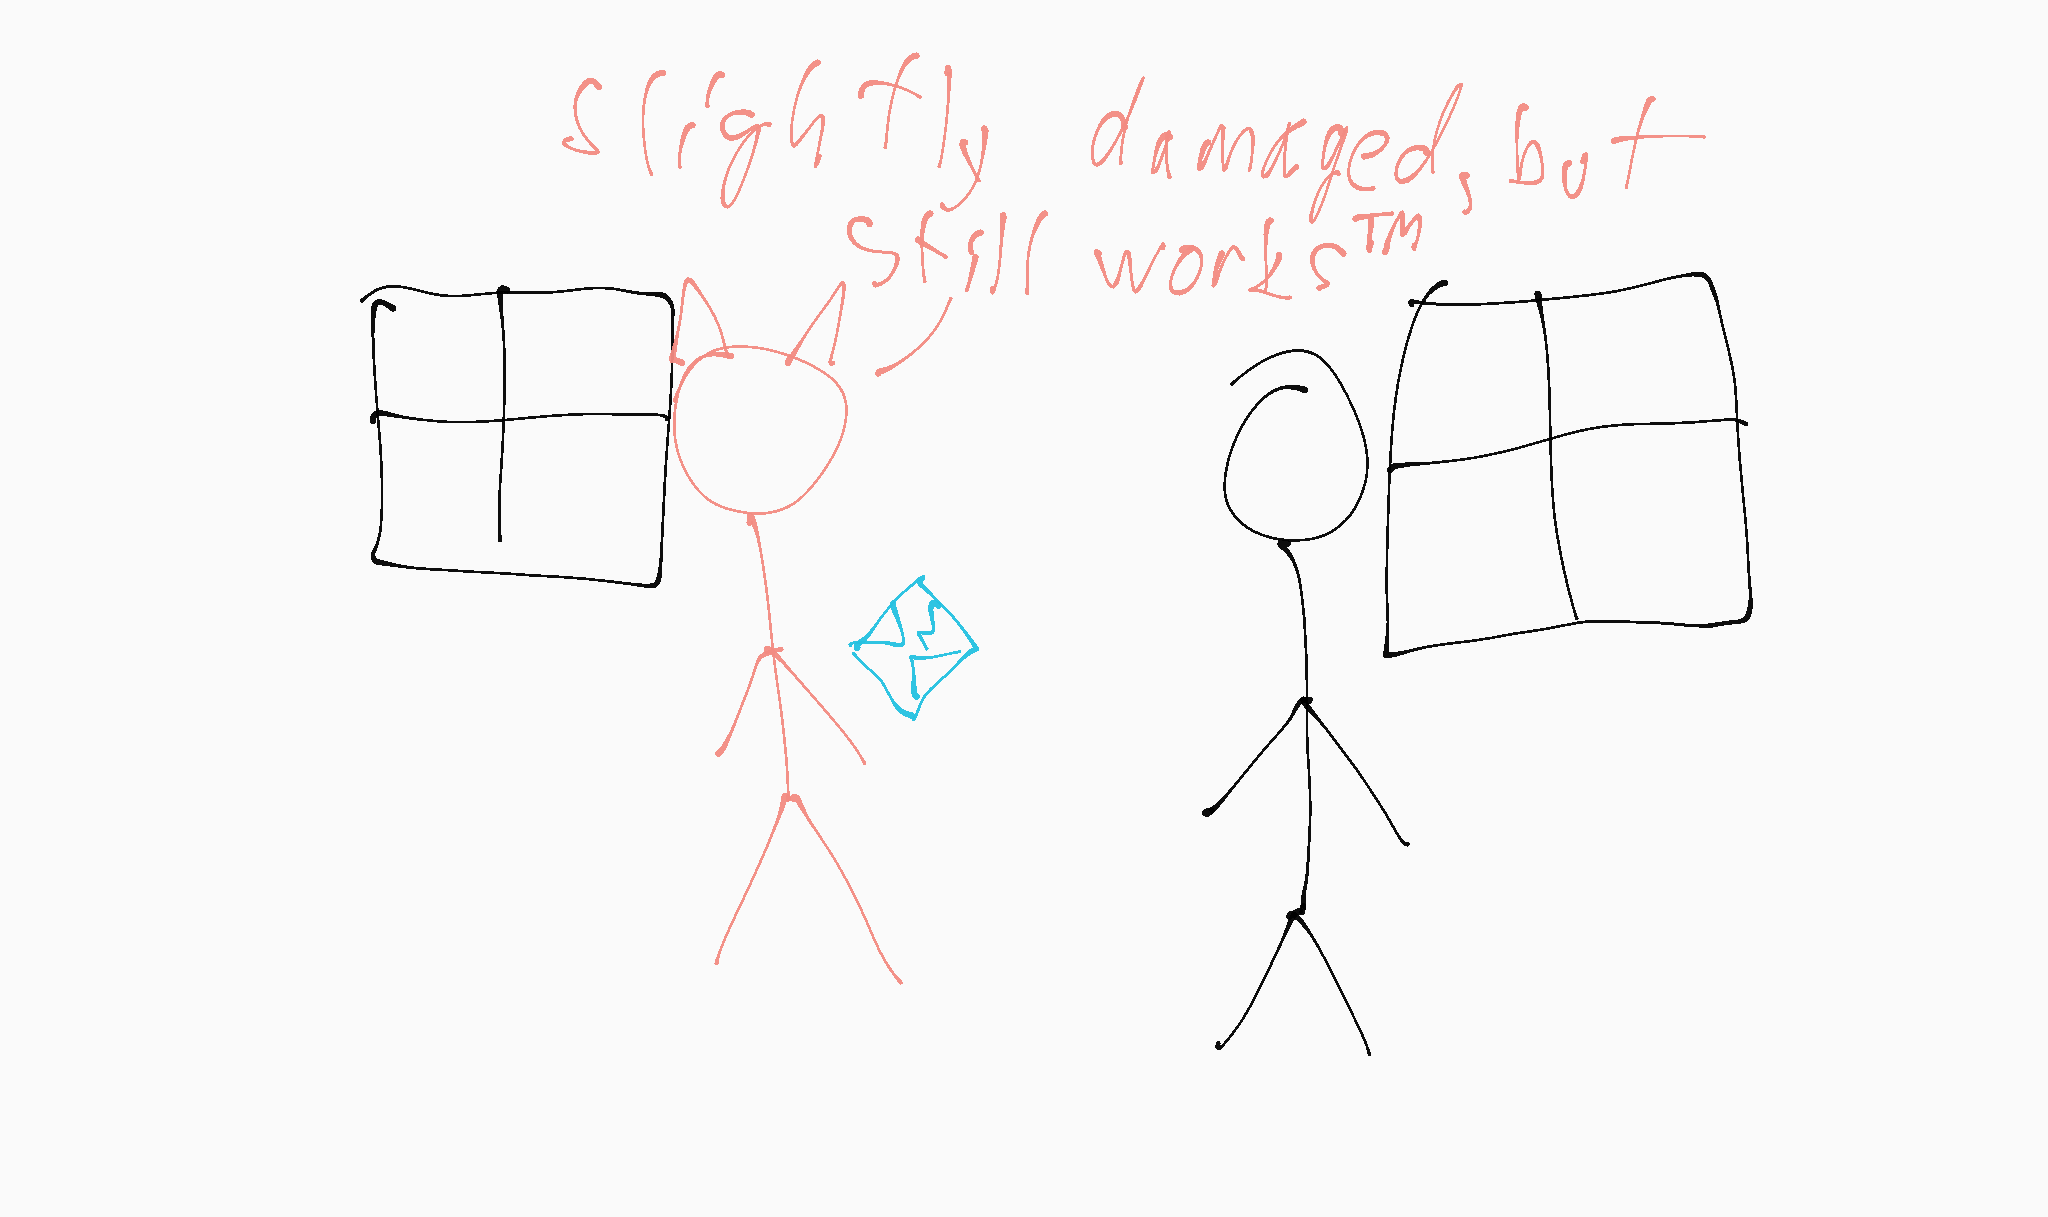 slightly damaged, but
still works™